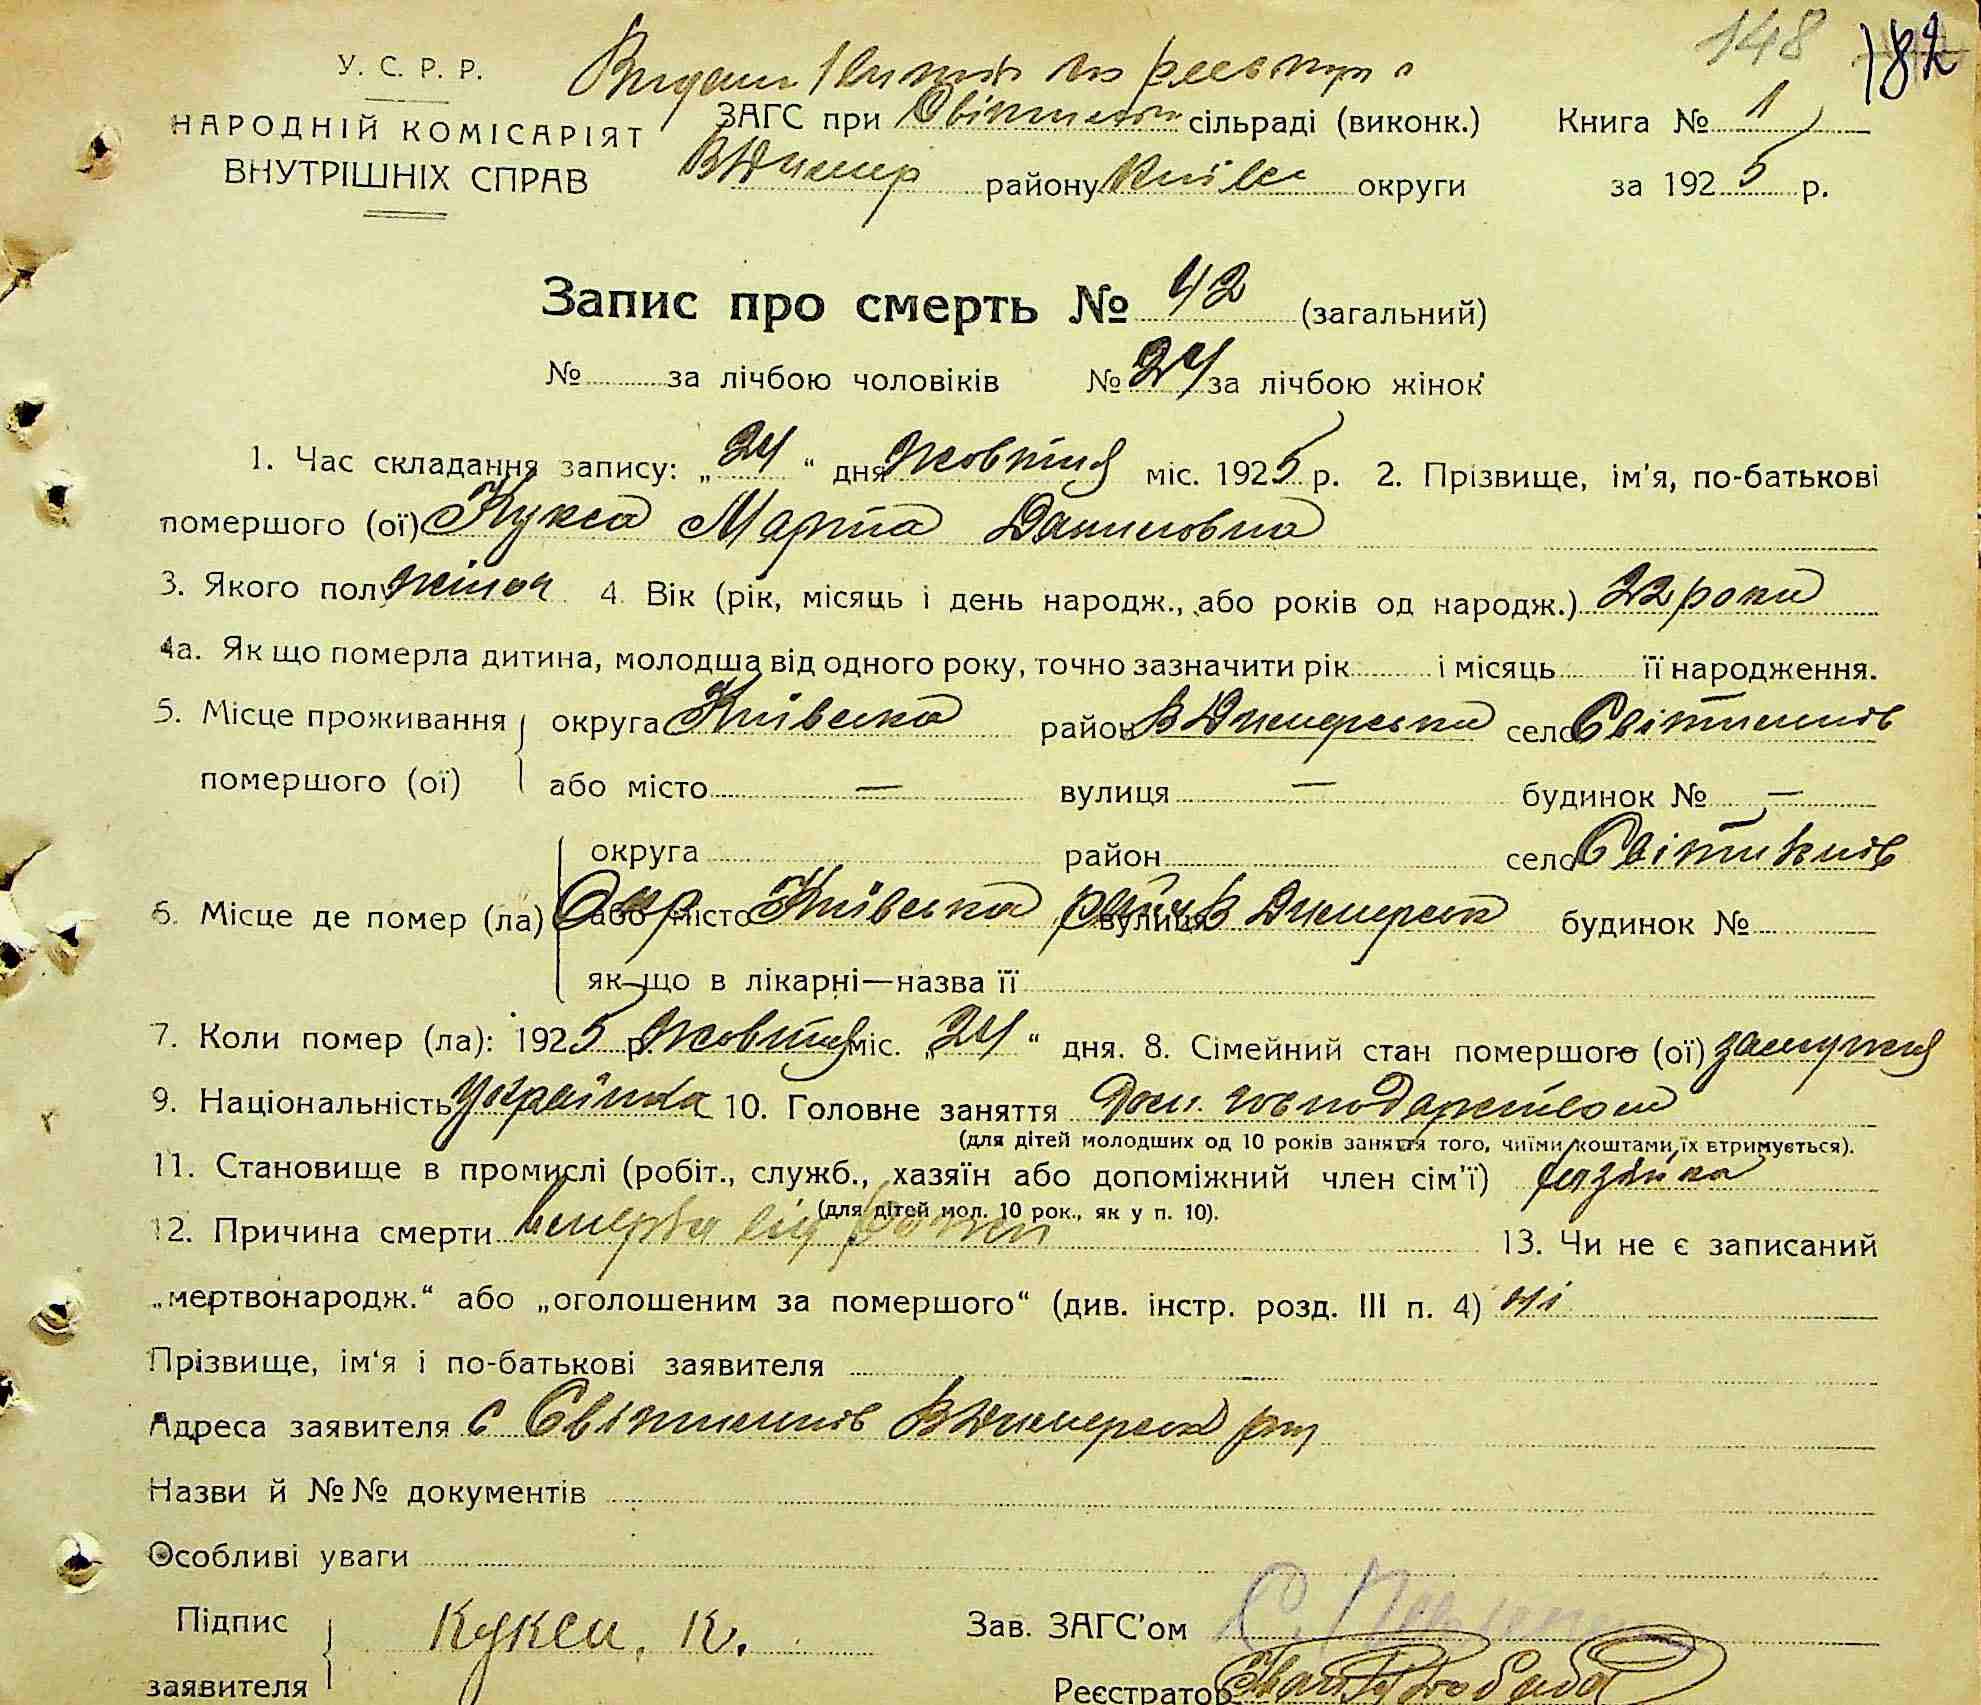 148 182
У. С. Р. Р.
НАРОДНІЙ КОМІСАРІЯТ
ВНУТРІШНІХ СПРАВ
ЗАГС при сільраді (виконк.)
В Димер району Київс округи
Книга № 1
за 1925 р.
Запис про смерть № 42 (загальний)
№ за лічбою чоловіків № 24 за лічбою жінок
1. Час складання запису: „24“ дня жовтня міс. 1925 р. 2. Прізвище, ім'я, по-батькові
помершого (ої) Кукса Марта Даниловна
3. Якого полу жіноч 4. Вік (рік, місяць і день народж., або років од народж.) 22 роки
4а. Як що померла дитина, молодша від одного року, точно зазначити рік і місяць її народження.
5. Місце проживання помершого (ої) округа Київська район В Димерська село
або місто — вулиця — будинок № —
округа район село
6. Місце де помер (ла) або місто Окр Київська вулиця район В Димерськ будинок №
як що в лікарні—назва її
7. Коли помер (ла): 1925 р. жовтня міс. „24“ дня. 8. Сімейний стан помершого (ої) замужня
9. Національність Українка 10. Головне заняття Дом. господарством
(для дітей молодших од 10 років заняття того, чиїми коштами їх втримується).
11. Становище в промислі (робіт., служб., хазяїн або допоміжний член сім'ї) хазяйка
(для дітей мол. 10 рок., як у п. 10).
12. Причина смерти вмерла від 13. Чи не є записаний
„мертвонародж.“ або „оголошеним за помершого“ (див. інстр. розд. III п. 4) ні
Прізвище, ім'я і по-батькові заявителя
Адреса заявителя с В Димерськ
Назви й №№ документів
Особливі уваги
Підпис заявителя Кукси. К.
Зав. ЗАГС'ом
Реєстратор